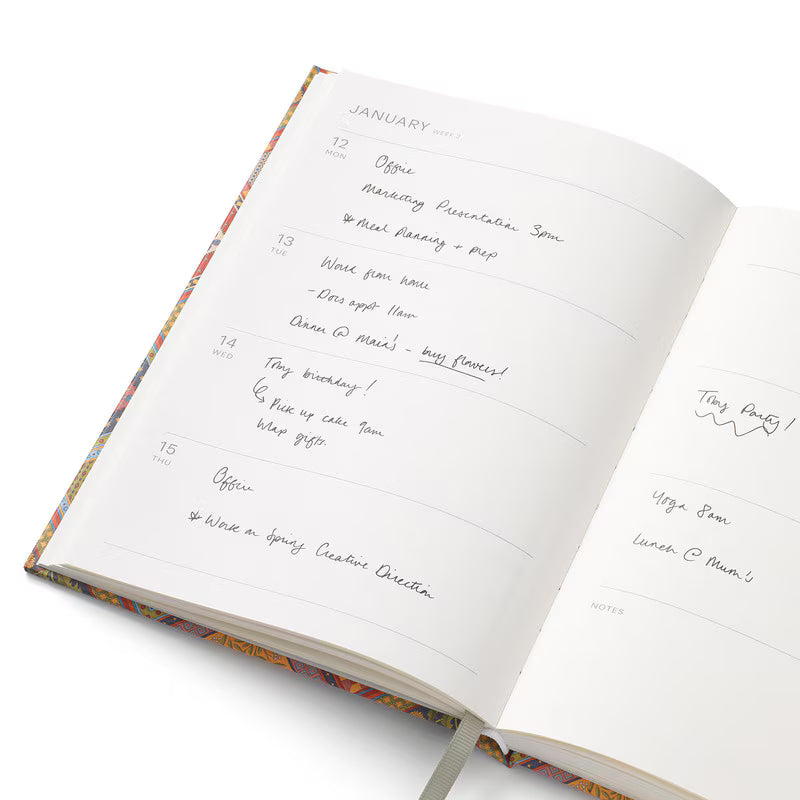 JANUARY WEEK 3
12
MON
Office
Marketing Presentation 3pm
* Meal Planning + prep
13
TUE
Work from home
- Docs appt 11am
Dinner @ Maia's - buy flowers!
14
WED
Toby birthday!
Pick up cake 9am
Wrap gifts.
15
THU
Office
* Work on Spring Creative Direction
Toby Party!
Yoga 8am
Lunch @ Mum's
NOTES